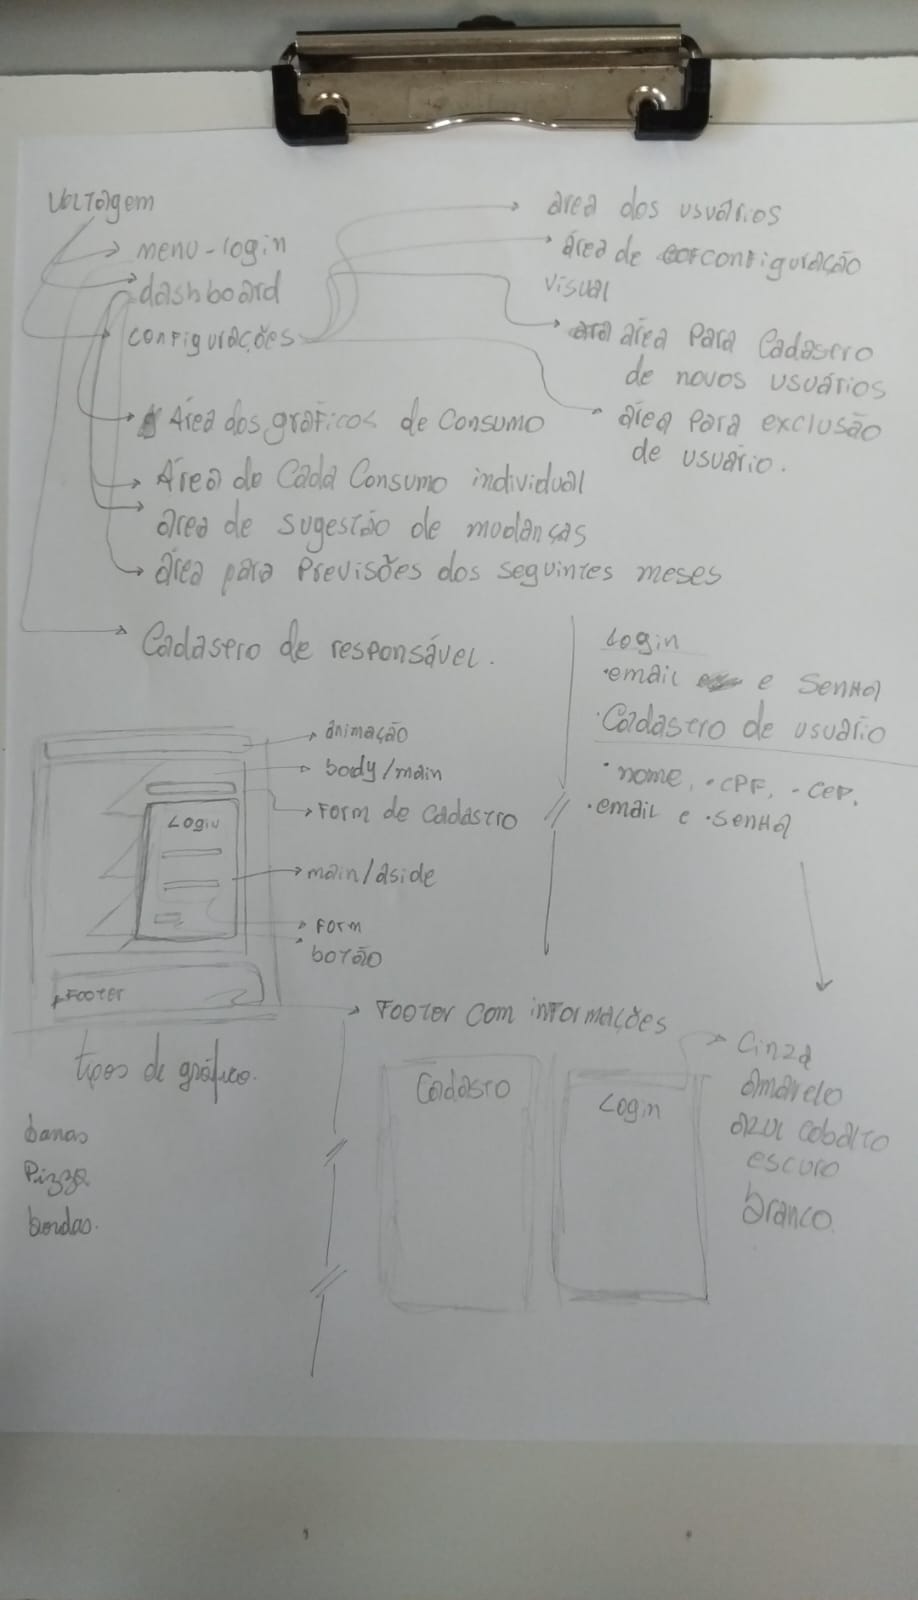 Voltagem
menu-login
dashboard
configurações
área dos usuários
área de configuração
visual
área para Cadastro
de novos usuários
área para exclusão
de usuário.
Área dos gráficos de Consumo
Área de Cada Consumo individual
área de sugestão de mudanças
área para Previsões dos seguintes meses
Cadastro de responsável.
Login
·email e senha
·Cadastro de usuário
·nome, ·CPF, -CEP.
·email e ·senha
animação
body/main
Form de Cadastro
Login
main/aside
Form
botão
Footer
Footer com informações
tipos de gráfico.
barras
Pizza
bordas.
Cadastro
Login
Cinza
amarelo
azul cobalto
escuro
branco